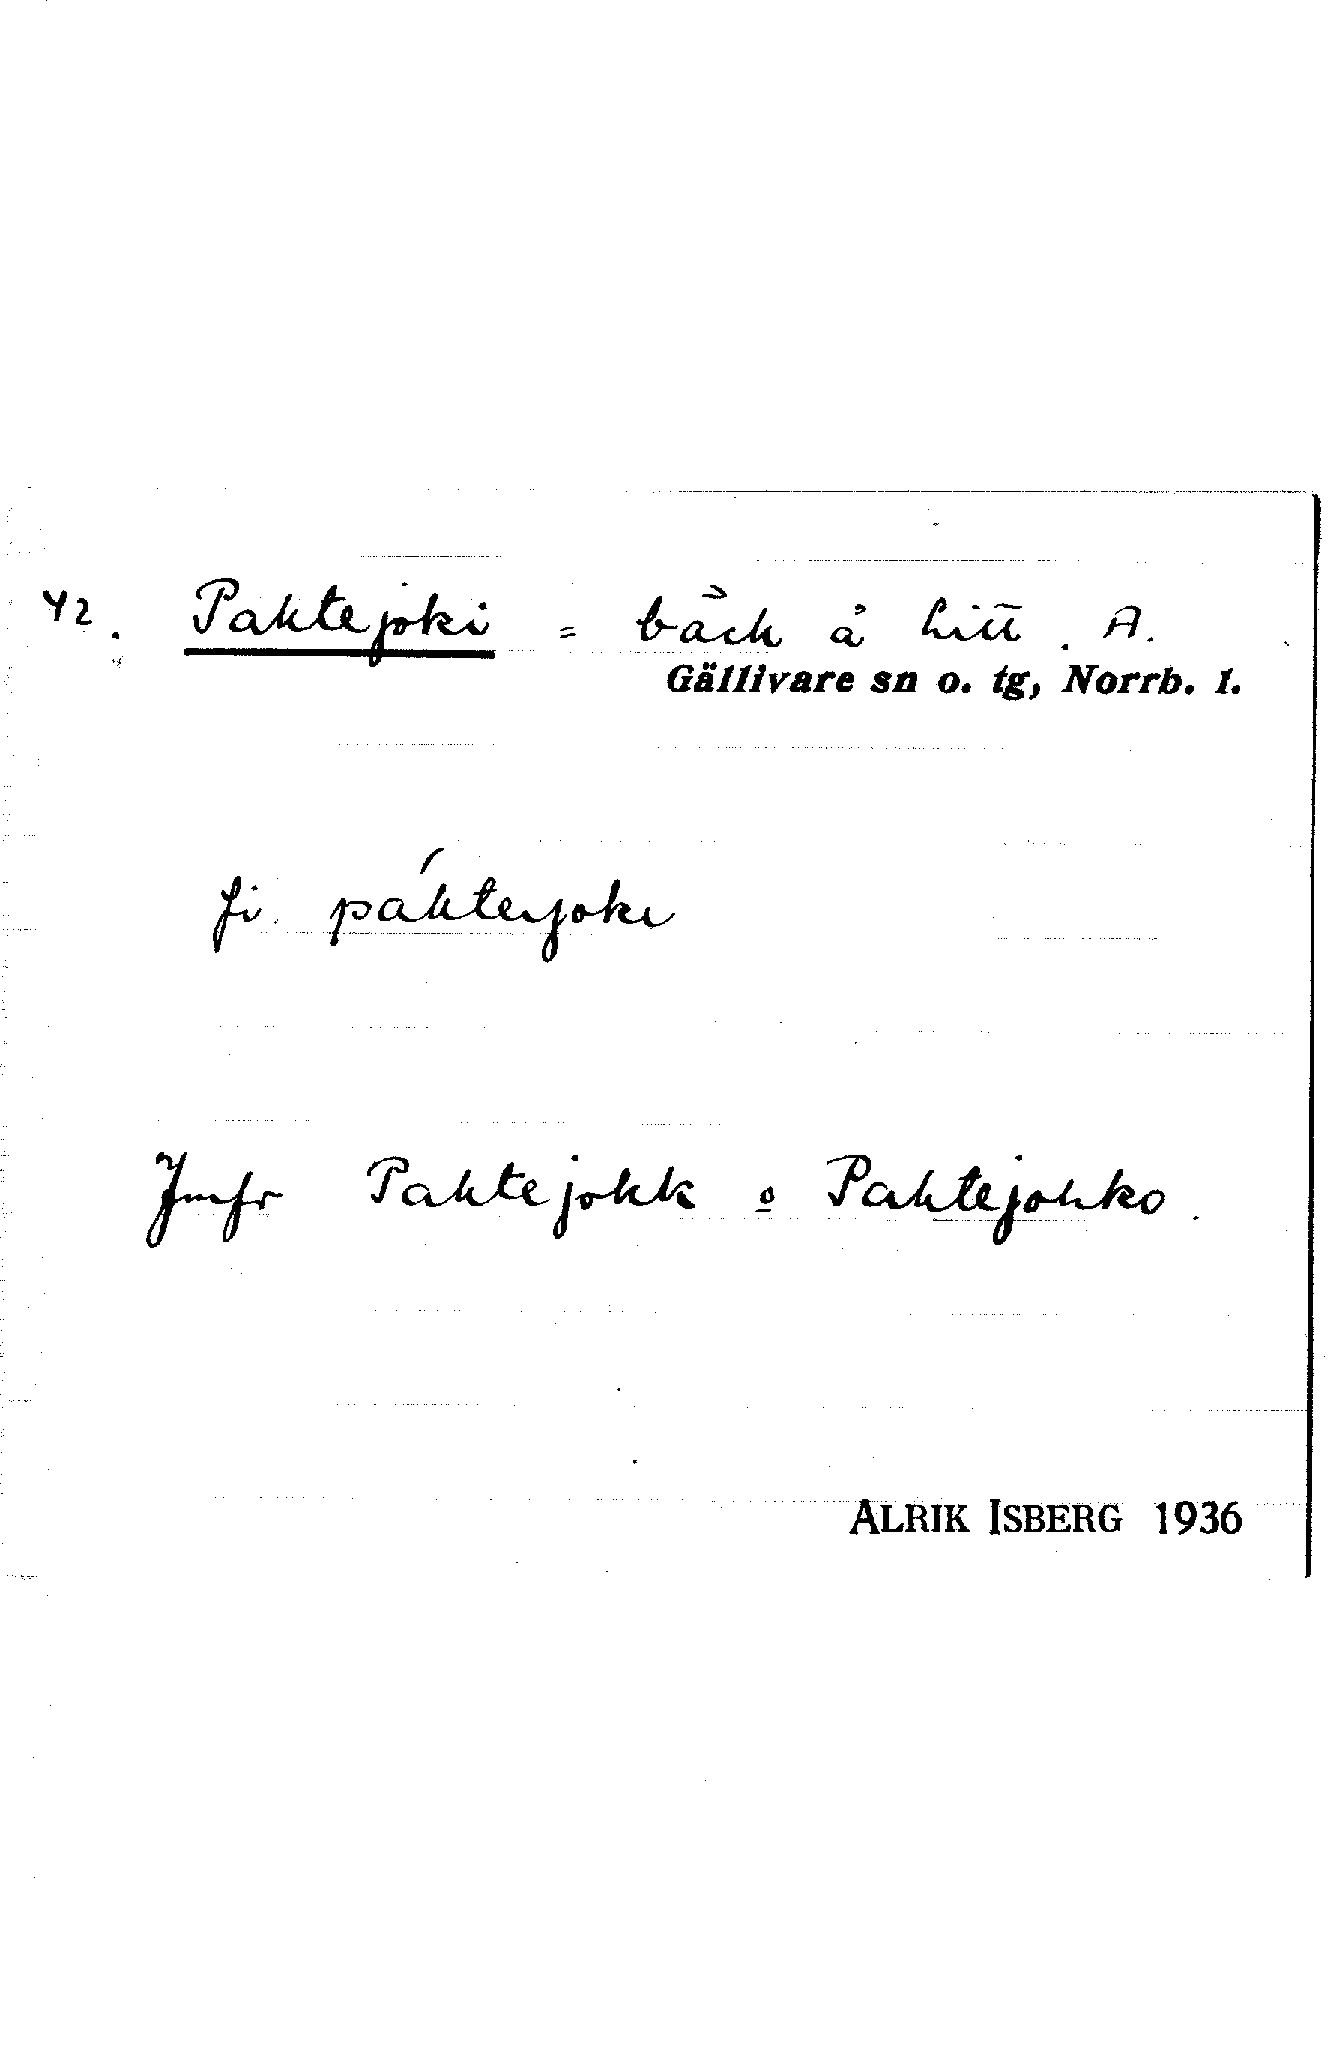 42. Paktejoki = bäck å hitt. A.
Gällivare sn o. tg, Norrb. l.
fi. páhteijoki
Jmfr Paktejokk o Pahtejohko.
ALRIK ISBERG 1936